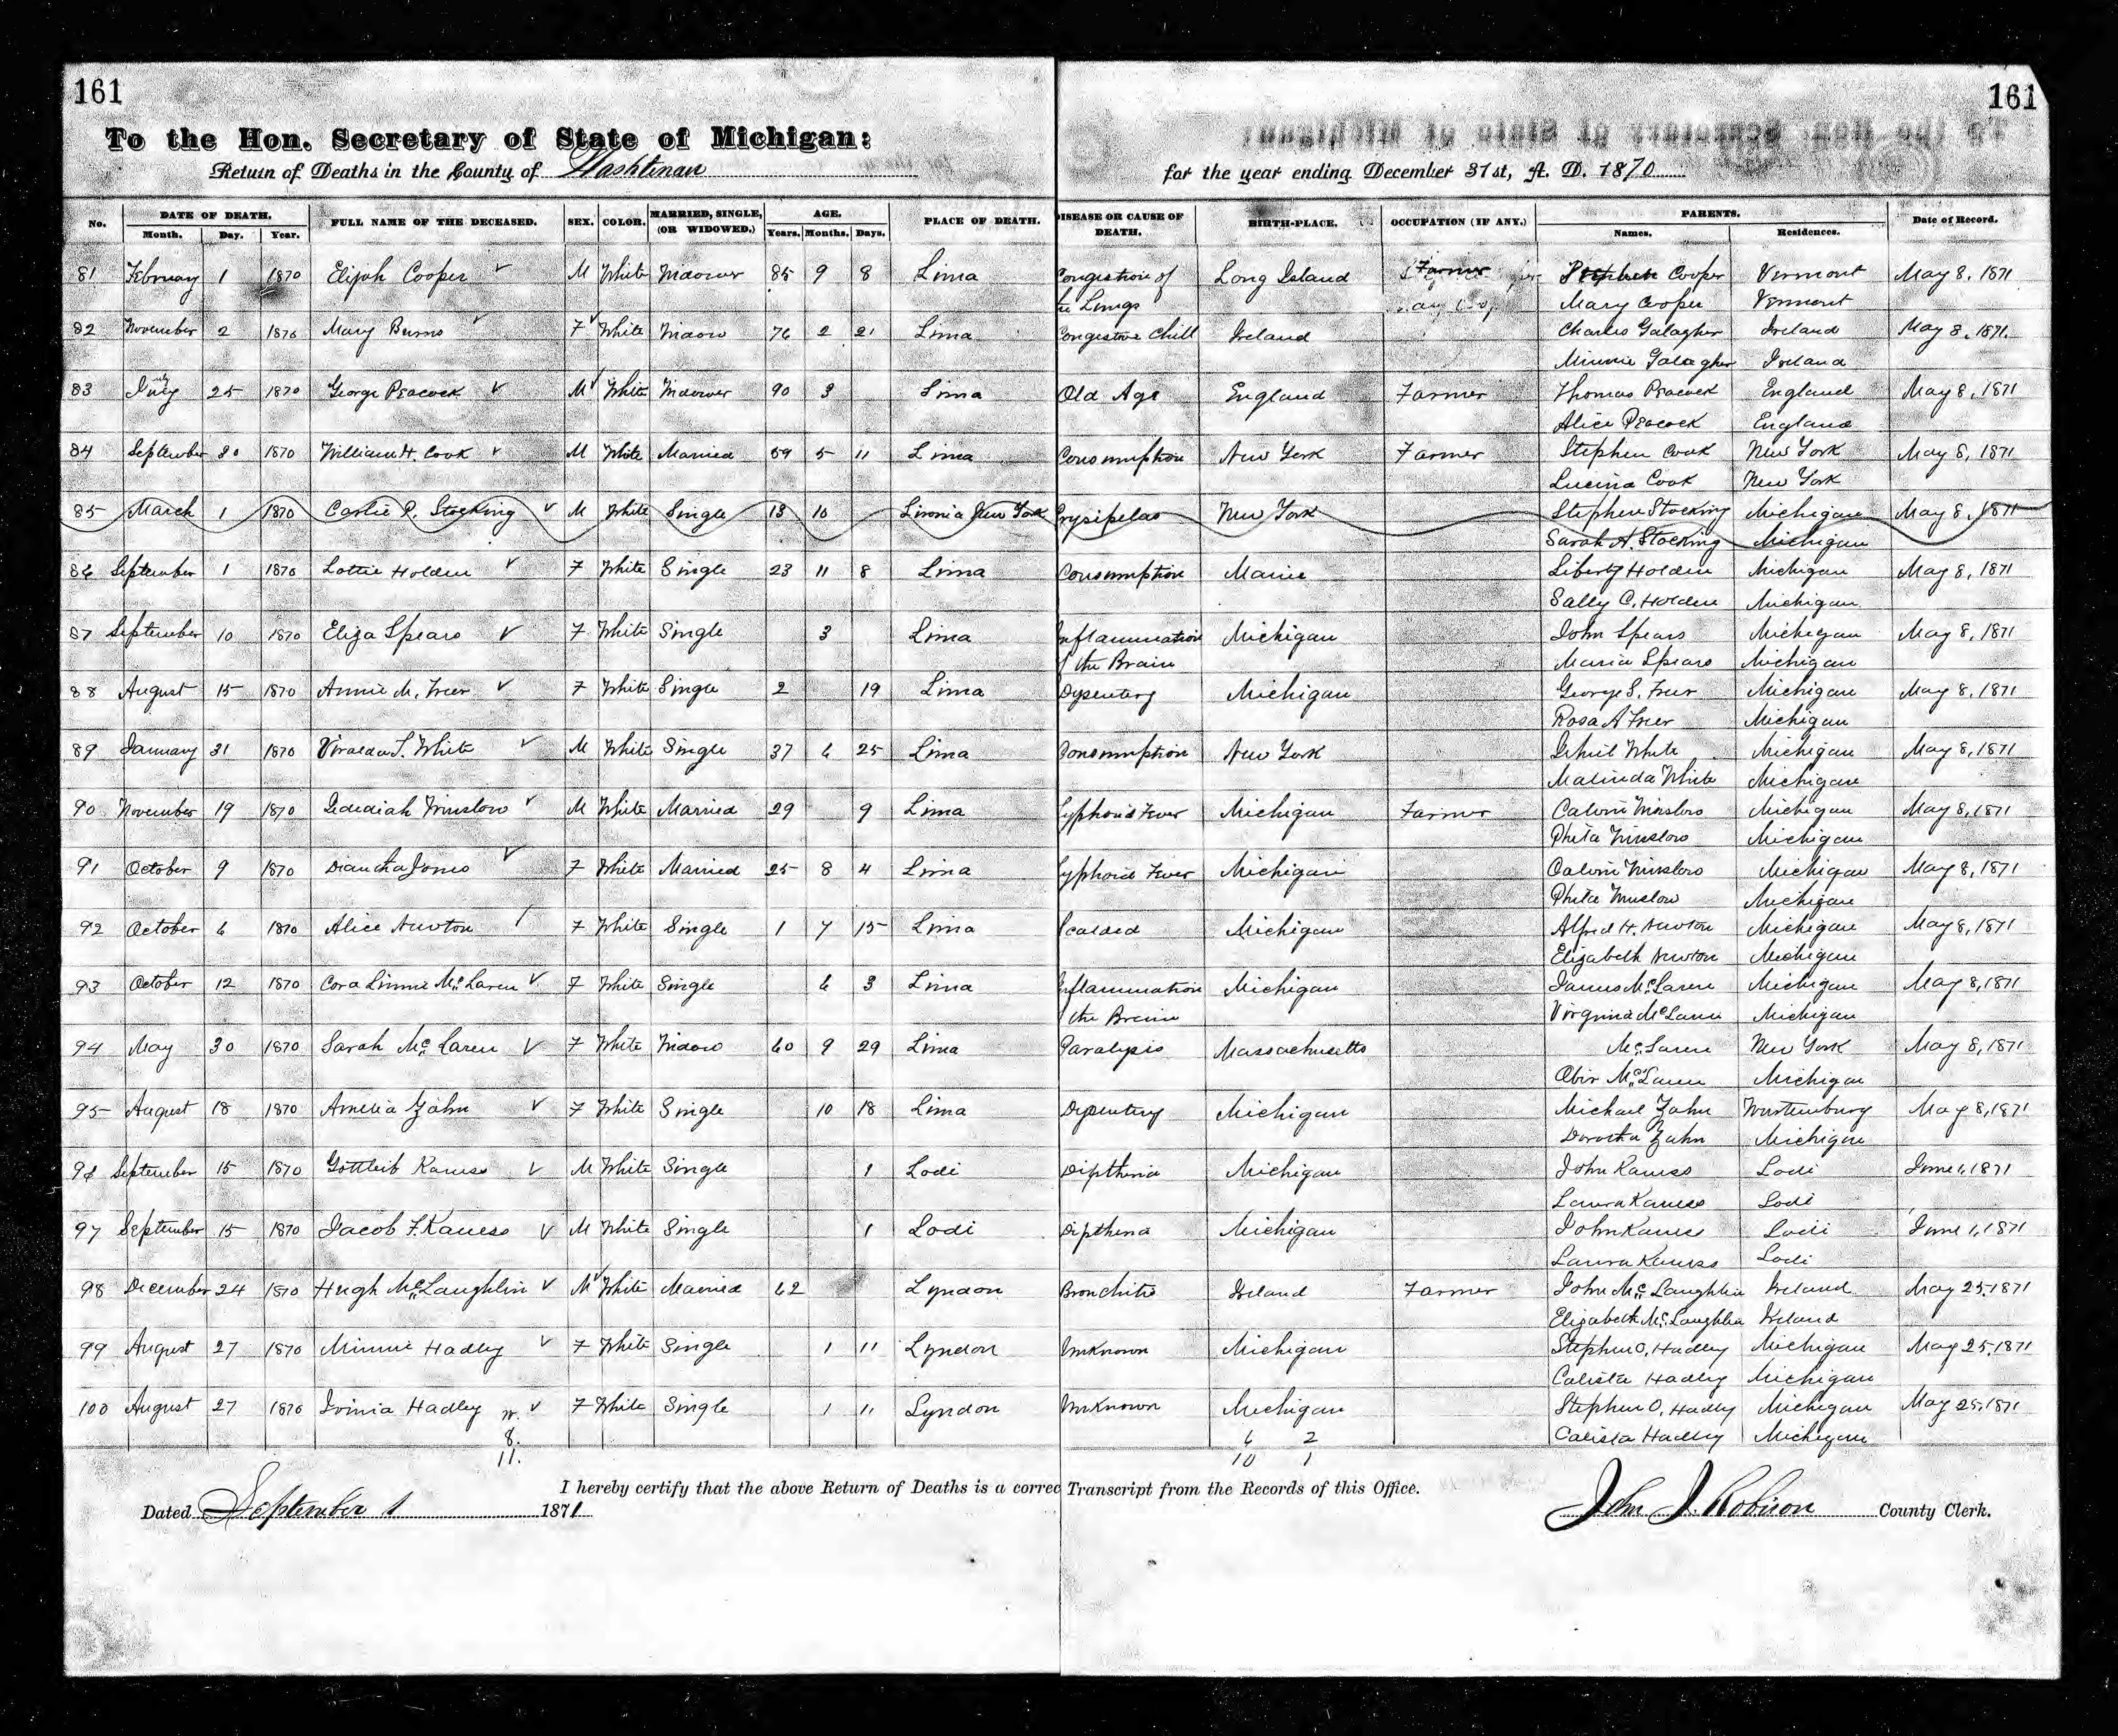 161
161
To the Hon. Secretary of State of Michigan:
Return of Deaths in the County of Washtenaw for the year ending December 31st, A. D. 1870
No. DATE OF DEATH. FULL NAME OF THE DECEASED. SEX. COLOR. MARRIED, SINGLE, (OR WIDOWED.) AGE. PLACE OF DEATH. DISEASE OR CAUSE OF DEATH. BIRTH-PLACE. OCCUPATION (IF ANY.) PARENTS. Date of Record.
Month. Day. Year. Years. Months. Days. Names. Residences.
81 February 1 1870 Elijah Cooper M White Widower 85 9 8 Lima Congestion of Long Island Farmer Stephen Cooper Vermont May 8, 1871
the Lungs Mary Cooper Vermont
82 November 2 1870 Mary Burns F White Widow 76 2 21 Lima Congestive Chill Ireland Charles Galagher Ireland May 8, 1871
Minnie Galagher Ireland
83 July 25 1870 George Peacock M White Widower 90 3 Lima Old Age England Farmer Thomas Peacock England May 8, 1871
Alice Peacock England
84 September 30 1870 William H. Cook M White Married 59 5 11 Lima Consumption New York Farmer Stephen Cook New York May 8, 1871
Lucina Cook New York
85 March 1 1870 Carlie P. Stocking M White Single 13 10 Livonia New York Erysipelas New York Stephen Stocking Michigan May 8, 1871
Sarah A. Stocking Michigan
86 September 1 1870 Lottie Holden F White Single 23 11 8 Lima Consumption Maine Liberty Holden Michigan May 8, 1871
Sally C. Holden Michigan
87 September 10 1870 Eliza Spears F White Single 3 Lima Inflammation Michigan John Spears Michigan May 8, 1871
of the Brain Maria Spears Michigan
88 August 15 1870 Annie M. Freer F White Single 2 19 Lima Dysentery Michigan George S. Freer Michigan May 8, 1871
Rosa A Freer Michigan
89 January 31 1870 White M White Single 37 6 25 Lima Consumption New York White Michigan May 8, 1871
Malinda White Michigan
90 November 19 1870 Jedediah Winslow M White Married 29 9 Lima Typhoid Fever Michigan Farmer Calvin Winslow Michigan May 8, 1871
Phita Winslow Michigan
91 October 9 1870 Diantha Jones F White Married 25 8 4 Lima Typhoid Fever Michigan Calvin Winslow Michigan May 8, 1871
Phita Winslow Michigan
92 October 6 1870 Alice Newton F White Single 1 7 15 Lima Scalded Michigan Alfred H. Newton Michigan May 8, 1871
Elizabeth Newton Michigan
93 October 12 1870 Cora Linnie McLaren F White Single 6 3 Lima Inflammation Michigan James McLaren Michigan May 8, 1871
of the Brain Virginia McLaren Michigan
94 May 30 1870 Sarah McLaren F White Widow 60 9 29 Lima Paralysis Massachusetts McLaren New York May 8, 1871
McLaren Michigan
95 August 18 1870 Amelia Zahn F White Single 10 18 Lima Dysentery Michigan Michael Zahn Wurtemburg May 8, 1871
Dorotha Zahn Michigan
96 September 15 1870 Gottleib Kauess M White Single 1 Lodi Diptheria Michigan John Kauess Lodi June 1, 1871
Laura Kauess Lodi
97 September 15 1870 Jacob F. Kauess M White Single 1 Lodi Diptheria Michigan John Kauess Lodi June 1, 1871
Laura Kauess Lodi
98 December 24 1870 Hugh McLaughlin M White Married 62 Lyndon Bronchitis Ireland Farmer John McLaughlin Ireland May 25, 1871
Elizabeth McLaughlin Ireland
99 August 27 1870 Minnie Hadley F White Single 1 11 Lyndon Unknown Michigan Stephen O. Hadley Michigan May 25, 1871
Calista Hadley Michigan
100 August 27 1870 Hadley F White Single 1 11 Lyndon Unknown Michigan Stephen O. Hadley Michigan May 25, 1871
8. 6 2 Calista Hadley Michigan
11. 10 1
I hereby certify that the above Return of Deaths is a correc Transcript from the Records of this Office.
Dated September 1 1871 John J. Robison County Clerk.